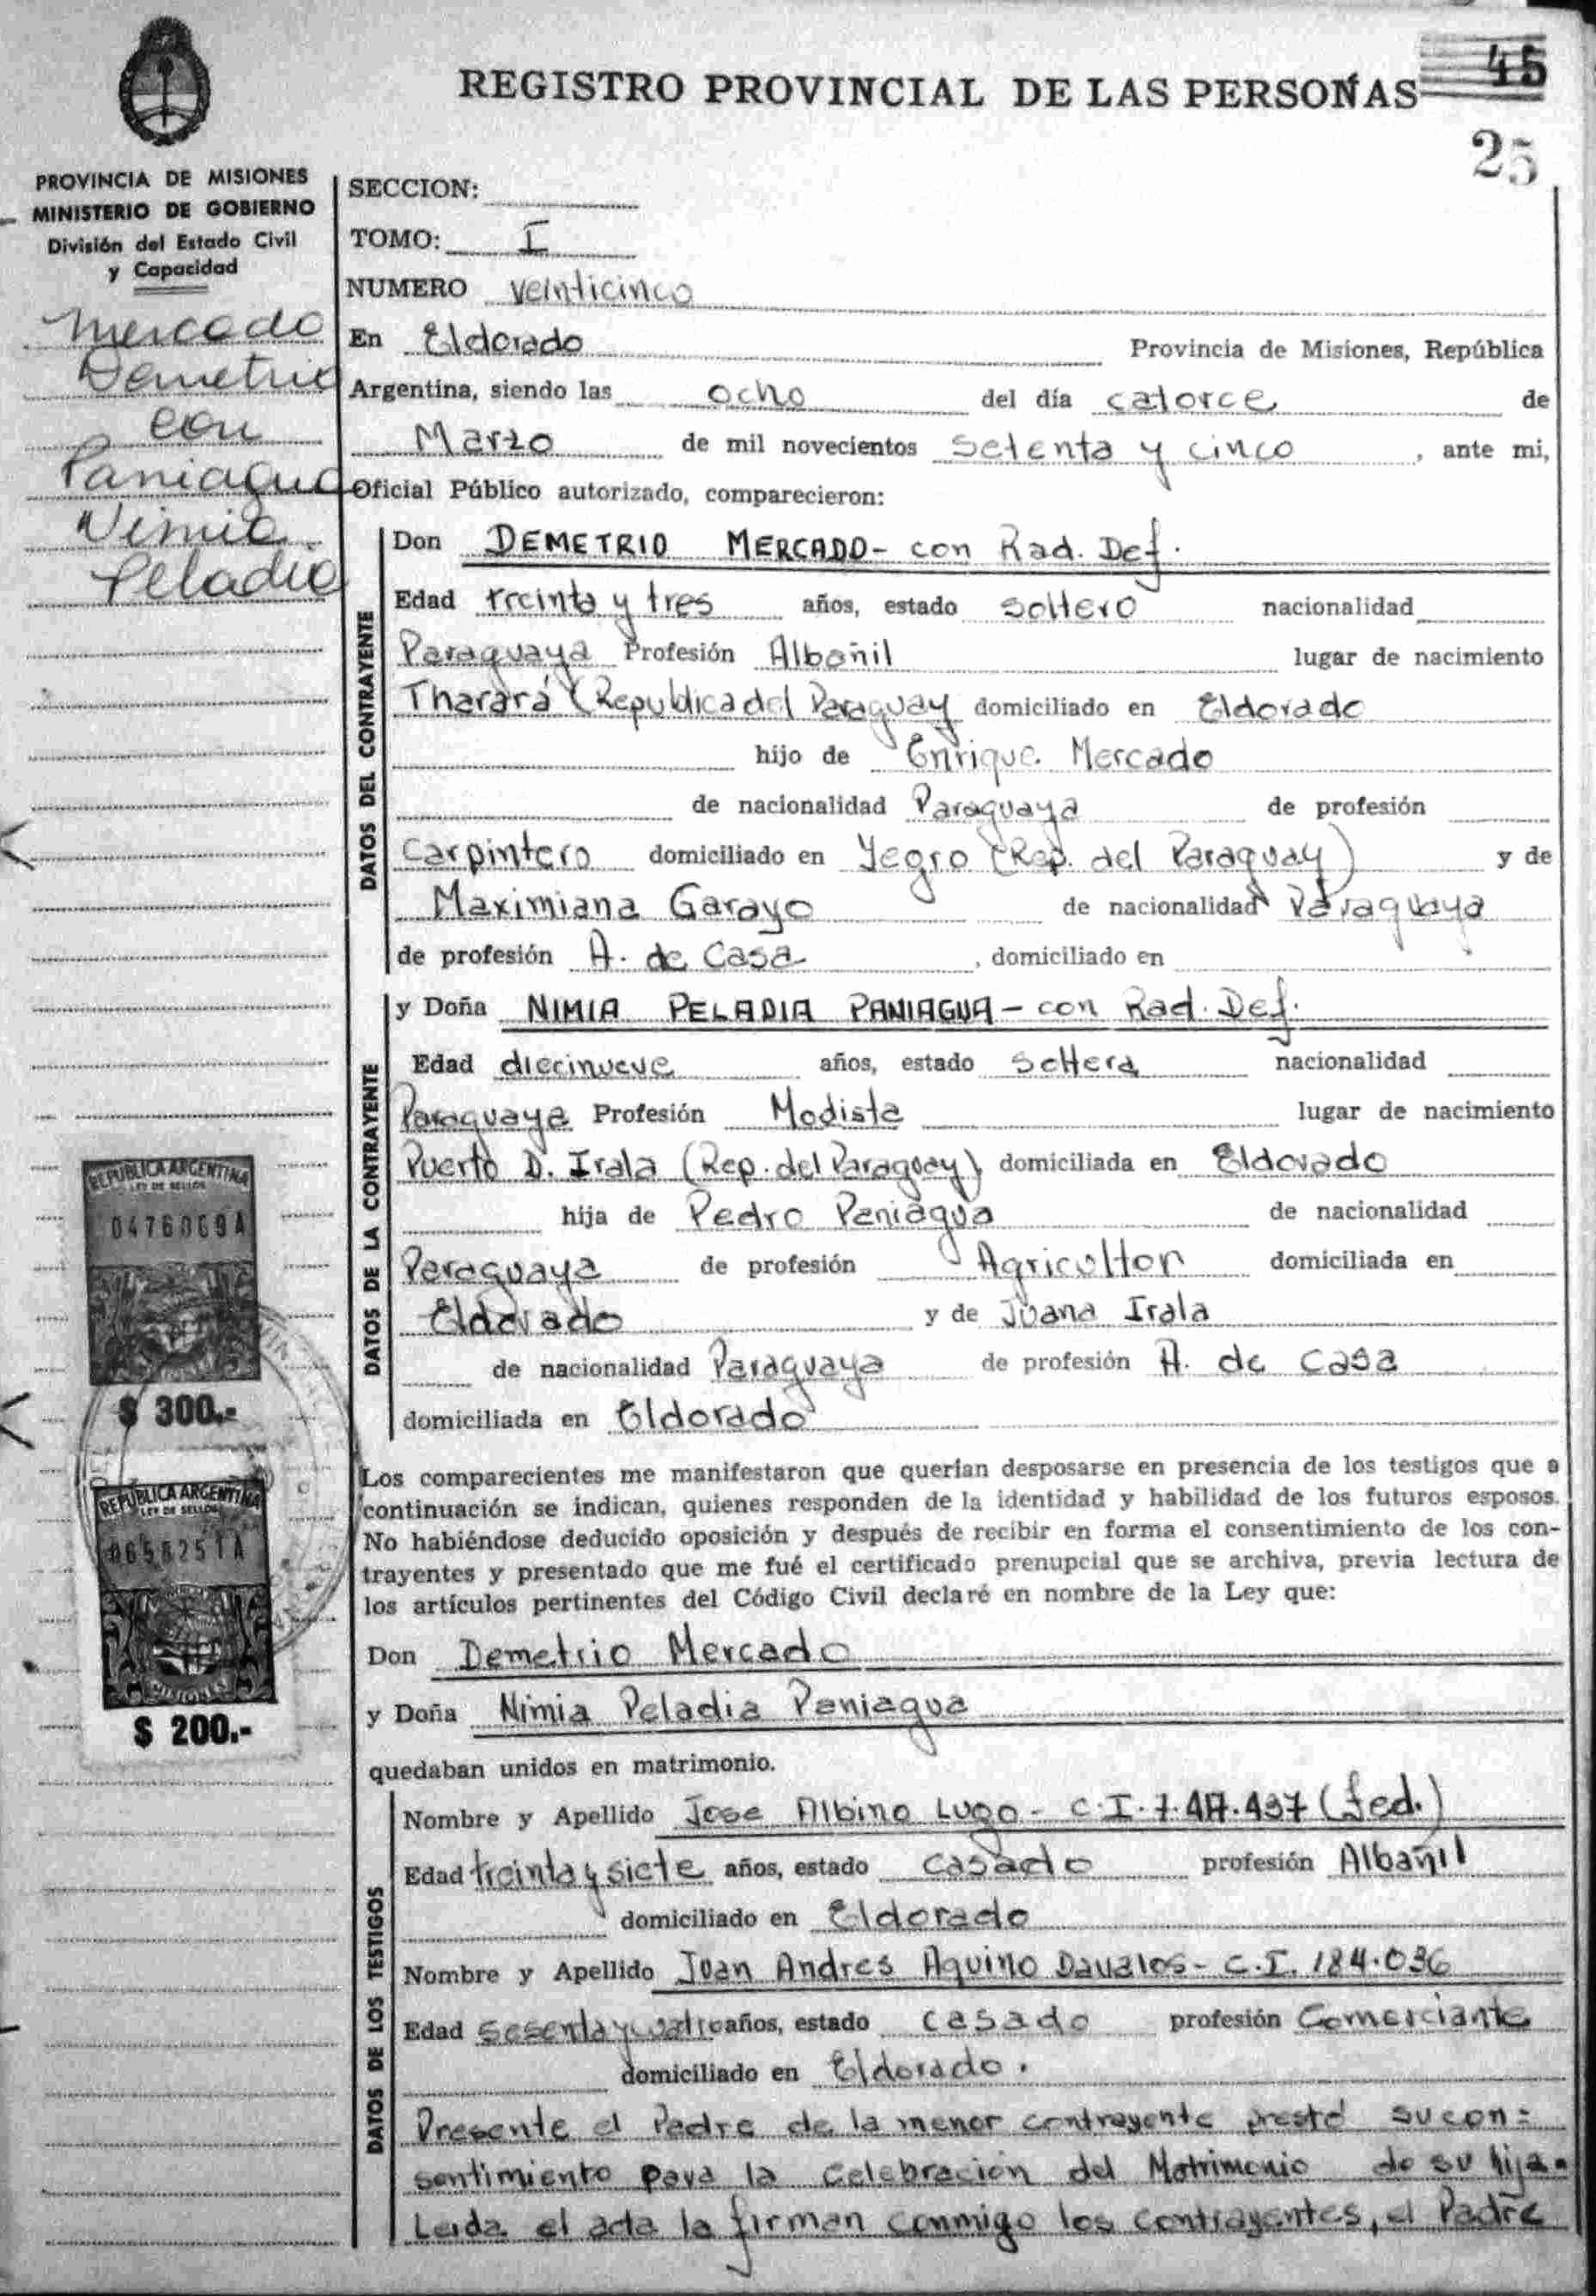 REGISTRO PROVINCIAL DE LAS PERSONAS
45
25
PROVINCIA DE MISIONES
MINISTERIO DE GOBIERNO
División del Estado Civil
y Capacidad
Mercado
Demetrio
con
Paniagua
Nimia
Peladia
SECCION:
TOMO: I
NUMERO veinticinco
En Eldorado Provincia de Misiones, República
Argentina, siendo las ocho del día catorce de
Marzo de mil novecientos setenta y cinco, ante mi,
Oficial Público autorizado, comparecieron:
DATOS DEL CONTRAYENTE
Don DEMETRIO MERCADO - con Rad. Def.
Edad treinta y tres años, estado soltero nacionalidad
Paraguaya Profesión Albañil lugar de nacimiento
Tharará (Republica del Paraguay domiciliado en Eldorado
hijo de Enrique Mercado
de nacionalidad Paraguaya de profesión
Carpintero domiciliado en Yegro (Rep. del Paraguay) y de
Maximiana Garayo de nacionalidad Paraguaya
de profesión A. de Casa, domiciliado en
DATOS DE LA CONTRAYENTE
y Doña NIMIA PELADIA PANIAGUA - con Rad. Def.
Edad diecinueve años, estado soltera nacionalidad
Paraguaya Profesión Modista lugar de nacimiento
Puerto D. Irala (Rep. del Paraguay) domiciliada en Eldorado
hija de Pedro Paniagua de nacionalidad
Paraguaya de profesión Agricultor domiciliada en
Eldorado y de Juana Irala
de nacionalidad Paraguaya de profesión A. de casa
domiciliada en Eldorado
REPUBLICA ARGENTINA
LEY DE SELLOS
0476069A
$ 300.-
REPUBLICA ARGENTINA
LEY DE SELLOS
0658251A
MISIONES
$ 200.-
Los comparecientes me manifestaron que querían desposarse en presencia de los testigos que a
continuación se indican, quienes responden de la identidad y habilidad de los futuros esposos.
No habiéndose deducido oposición y después de recibir en forma el consentimiento de los con-
trayentes y presentado que me fué el certificado prenupcial que se archiva, previa lectura de
los artículos pertinentes del Código Civil declaré en nombre de la Ley que:
Don Demetrio Mercado
y Doña Nimia Peladia Paniagua
quedaban unidos en matrimonio.
DATOS DE LOS TESTIGOS
Nombre y Apellido Jose Albino Lugo - C.I. (fed.)
Edad treinta y siete años, estado casado profesión Albañil
domiciliado en Eldorado
Nombre y Apellido Juan Andres Aquino Davalos - C.I. 184.036
Edad sesenta y cuatro años, estado casado profesión Comerciante
domiciliado en Eldorado.
Presente el Padre de la menor contrayente prestó su con=
sentimiento para la Celebración del Matrimonio de su hija.
Leida el acta la firman conmigo los contrayentes, el Padre